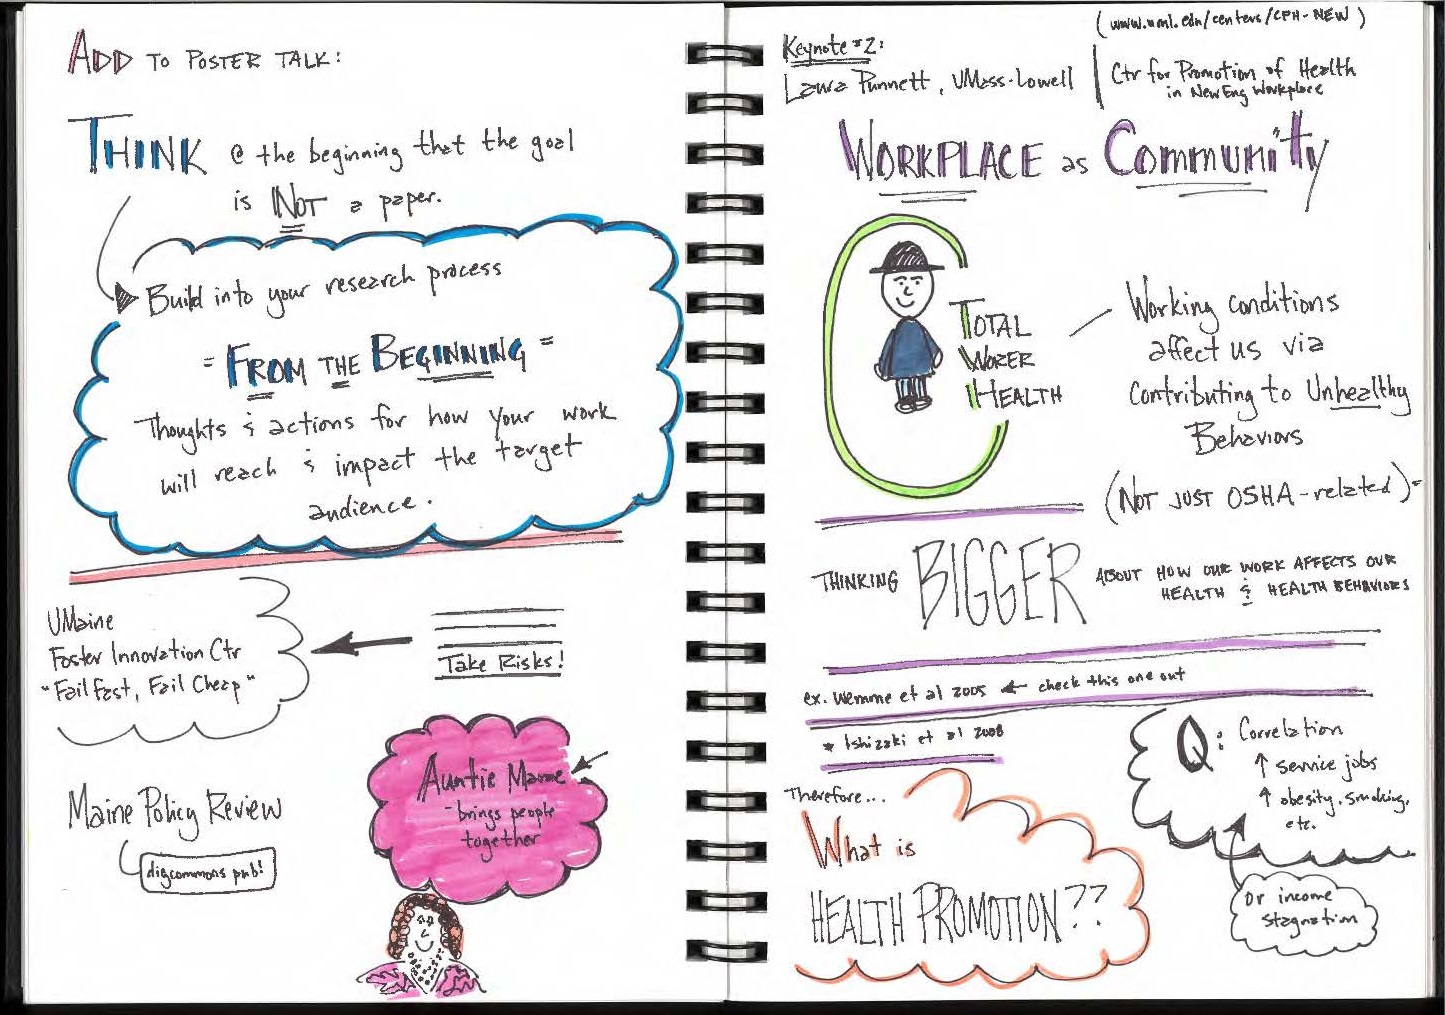 ADD TO POSTER TALK:
THINK @ the beginning that the goal
is NOT a paper.
Build into your research process
= FROM THE BEGINNING =
Thoughts & actions for how your work
will reach & impact the target
audience.
UMaine
Foster Innovation Ctr
"Fail fast, Fail Cheap"
Take Risks!
Auntie Mame
- brings people
together
Maine Policy Review
digcommons pub!
(www.uml.edu/centers/CPH-NEW)
Keynote #2:
Laura Punnett, UMass-Lowell
Ctr for Promotion of Health
in New Eng Workplace
WORKPLACE as Community
TOTAL
WORER
HEALTH
Working conditions
affect us via
Contributing to Unhealthy
Behaviors
(NOT JUST OSHA-related)
THINKING BIGGER ABOUT HOW OUR WORK AFFECTS OUR
HEALTH & HEALTH BEHAVIORS
ex. Wemme et al 2005 ← check this one out
* Ishizaki et al 2008
Q: Correlation
↑ service jobs
↑ obesity, smoking,
etc.
Or income
stagnation
Therefore...
What is
HEALTH PROMOTION??